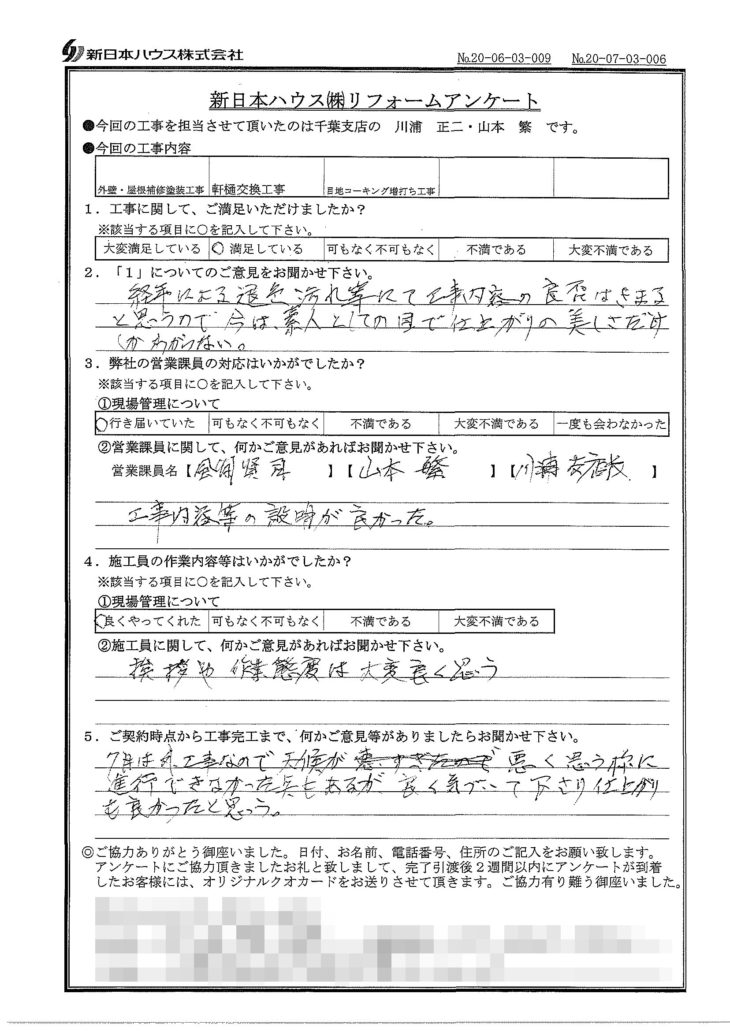 新日本ハウス株式会社
№20-06-03-009 №20-07-03-006
新日本ハウス㈱リフォームアンケート
●今回の工事を担当させて頂いたのは千葉支店の 川浦 正二・山本 繁 です。
●今回の工事内容
外壁・屋根補修塗装工事 軒樋交換工事 目地コーキング増打ち工事
1．工事に関して、ご満足いただけましたか？
※該当する項目に○を記入して下さい。
大変満足している ○ 満足している 可もなく不可もなく 不満である 大変不満である
2．「1」についてのご意見をお聞かせ下さい。
経年による退色 汚れ等にて工事内容の良否はきまる
と思うので 今は、素人としての目で仕上がりの美しさだけ
しかわからない。
3．弊社の営業課員の対応はいかがでしたか？
※該当する項目に○を記入して下さい。
①現場管理について
○行き届いていた 可もなく不可もなく 不満である 大変不満である 一度も会わなかった
②営業課員に関して、何かご意見があればお聞かせ下さい。
営業課員名【 】【山本 繁 】【川浦 支店長 】
工事内容等の説明が良かった。
4．施工員の作業内容等はいかがでしたか？
※該当する項目に○を記入して下さい。
①現場管理について
○良くやってくれた 可もなく不可もなく 不満である 大変不満である
②施工員に関して、何かご意見があればお聞かせ下さい。
挨拶や 作業態度は 大変良く思う
5．ご契約時点から工事完工まで、何かご意見等がありましたらお聞かせ下さい。
工事なので 天候が 悪すぎたので 悪く 思う様に
進行できなかった点もあるが 良く気づいて下さり 仕上がり
も良かったと思う。
◎ご協力ありがとう御座いました。日付、お名前、電話番号、住所のご記入をお願い致します。
アンケートにご協力頂きましたお礼と致しまして、完了引渡後２週間以内にアンケートが到着
したお客様には、オリジナルクオカードをお送りさせて頂きます。ご協力有り難う御座いました。